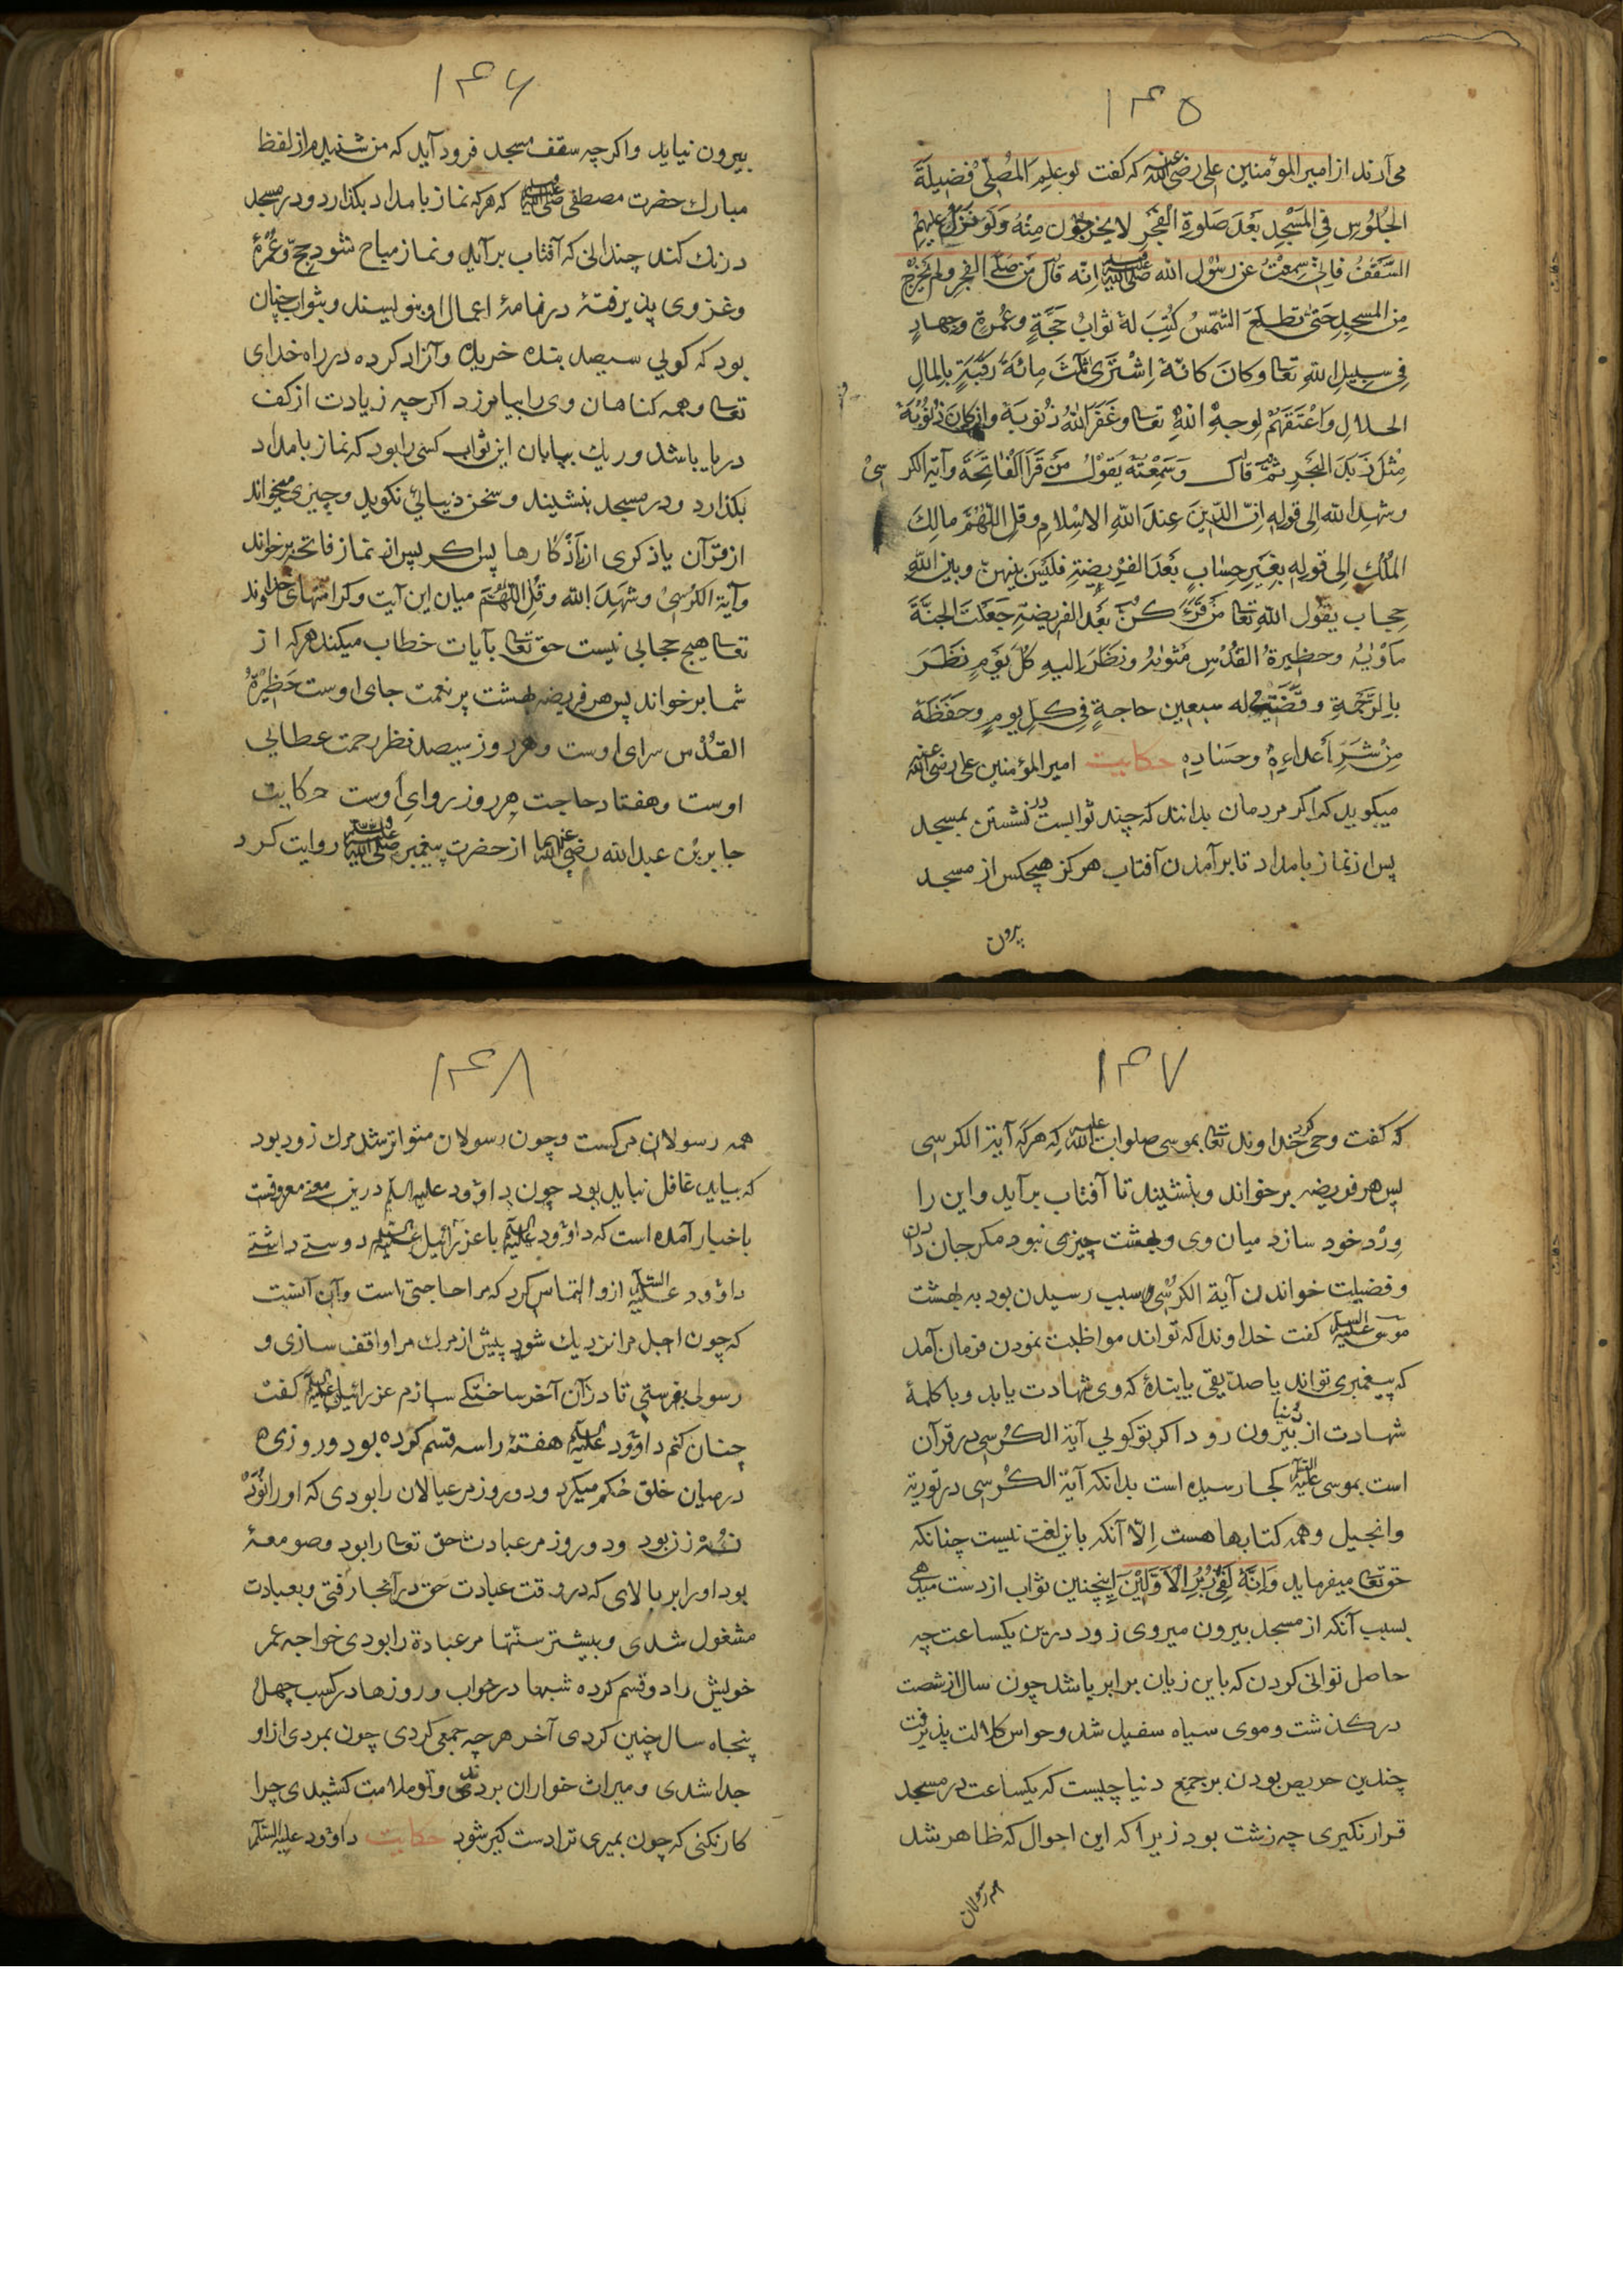 ۱۴۵
می‌آرند از امیر المؤمنین علی رضی الله عنه که گفت لو علم المصلی فضیلة
الجُلُوسِ فِی المَسْجِدِ بَعْدَ صَلوةِ الْفَجْرِ لا یخرجون مِنْهُ وَلَو نَزَلَ علیهم
السَّقَفُ فانی سَمِعْتُ عن رَسُول الله صلی الله علیه وسلم انّه قال مَن صَلَّی الفجر ولم یَخرج
مِن المسجدِ حَتیّٰ تطلعَ الشّمسُ کُتِبَ لهٗ ثوابُ حَجَّةٍ وعُمرةٍ وجهادٍ
فِی سبیلِ اللهِ تعا وکانَ کانّهٗ اِشْتَرَیٰ ثَلٰثَ مِائةَ رَقَبَةٍ بالمالِ
الحلالِ وَاَعْتَقَهُمْ لِوجهِ اللهِ تعا وغَفَرَ اللهُ ذُنوبهٗ وان کان ذُنُوبُهٗ
مِثْلَ زَبَدَ البَحْرِ ثمَّ قال وَسَمِعْتهٗ یَقُوْلُ مَن قَرَاَ الْفَاتِحَةَ وآیَة الکرسیْ
وشهد الله الی قولِهِ انّ الدّینَ عِندَ اللهِ الاسْلامِ وقلِ اللّٰهُمَّ مالِکَ
المُلْکِ الی قوله بِغَیرِ حِسَابٍ بَعْدَ الفَرِیضةِ فلَیسَ بَینهنّ وبین اللهِ
حِجاب یقول الله تعا مَن قَرَءَکُنّ بَعْدَ الفریضةِ جَعَلْتَ الجنّةَ
مَاْوٰیهُ وحظیرةُ القُدُس مَثوٰیهُ ونَظَرَ اِلیهِ کلّ یَومٍ نَظَرَ
بالرّحْمَةِ وقَضَیْتُ له سبعین حاجةٍ فی کلِ یومٍ وحَفَظَهٗ
مِنْ شَرِّ اَعْداءِهِ وحسّادِهِ حکایت امیر المؤمنین علی رضی الله عنه
میگوید که اگر مردمان بدانند که چند ثوابست در نشستن بمسجد
پس از نماز بامداد تا برآمدن آفتاب هرگز هیچکس از مسجد
بیرون
۱۴۶
بیرون نیاید واکرچه سقف مسجد فرود آید که من شنیدم از لفظ
مبارك حضرت مصطفی صلی الله علیه وسلم که هرکه نماز بامداد بکذارد و در مسجد
درنك کند چندانی که آفتاب برآید ونماز مباح شود حجّ وعُمْرهٔ
وغزوی پذیرفتهٔ در نامهٔ اعمال او بنویسند وبثواب چنان
بود که کویی سیصد بنده خریده وآزاد کرده در راه خدای
تعا وهمه کناهان وی را بیامرزد اکرچه زیادت از کف
دریا باشد وریك بیابان این ثواب کسی را بود که نماز بامداد
بکذارد ودر مسجد بنشیند وسخن دنیایی نکوید وچیزی میخواند
از قرآن یا ذکری از اَذکارها پس هر که پس از نماز فاتحه برخواند
وآیة الکرسیْ وشَهِدَ الله وقُلِ اللّٰهُمَّ میان این آیت وکرامتهای خداوند
تعا هیچ حجابی نیست حق تعا بآیات خطاب میکند هر که از
شما برخواند پس هر فریضه بهشت پر نعمت جای اوست حَظِیْرَةُ
القُدُس سرای اوست وهر روز سیصد نظر رحمت عطایی
اوست وهفتاد حاجت هر روز روایِ اوست حکایت
جابر بن عبد الله رضی الله عنهما از حضرت پیغمبر صلی الله علیه وسلم روایت کرد
۱۴۷
که کفت وحی کرد خداوند تعا بموسی صلوات الله علیه که هر که آیة الکرسی
پس هر فریضه برخواند وبنشیند تا آفتاب برآید واین را
وِرْد خود سازد میان وی وبهشت چیزی نبود مکر جان دادن
وفضیلت خواندن آیة الکرسی سبب رسیدن بود به بهشت
موسی علیه السلام کفت خداوندا که تواند مواظبت نمودن فرمان آمد
که پیغمبری تواند یا صدّیقی یا بندهٔ که وی شهادت یابد وبا کلمهٔ
شهادت از دنیا بیرون رود اکر تو کویی آیة الکرسی در قرآن
است بموسی علیه السلام کجا رسیده است بدانکه آیة الکرسی در توریة
وانجیل وهمه کتابها هست اِلّا آنکه باین لغت نیست چنانکه
حق تعا میفرماید وَاِنَّهٗ لَفِیْ زُبُرِ الْاَوَّلِیْنَ اینچنین ثواب از دست میدهی
بسبب آنکه از مسجد بیرون میروی زود درین یکساعت چه
حاصل توانی کردن که باین زیان برابر باشد چون سال از شصت
درکذشت وموی سیاه سفید شد وحواس کلالت پذیرفت
چندین حریص بودن بر جمع دنیا چیست که یکساعت در مسجد
قرار نکیری چه زشت بود زیرا که این احوال که ظاهر شد
همه رسولان
۱۴۸
همه رسولان مرکست وچون رسولان متواتر شد مرك زود بود
که بیاید غافل نباید بود چون بداؤود علیه السلام درین معنی معروفست
باخبار آمده است که داؤود علیه السلام با عزرائیل علیه السلام دوستی داشتی
داؤود علیه السلام ازو التماس کرد که مرا حاجتی است وآن آنست
که چون اجل مرا نزدیك شود پیش از مرك مرا واقف سازی و
رسولی بفرستی تا در آن آخر ساختکی سازم عزرائیل علیه السلام کفت
چنان کنم داؤود علیه السلام هفتهٔ را سه قسم کرده بود دو روزی
درمیان خلق حُکم میکرد ودو روز مر عیالان را بودی که او را نَوَدْ
نُهْ زن بود ودو روز مر عبادت حق تعا را بود وصومعهٔ
بود او را بر بالای که در وقت عبادت حق در آنجا رفتی وبعبادت
مشغول شدی وبیشتر سنّتها مر عبادة را بودی خواجه عمر
خویش را دو قسم کرده شبها در خواب وروزها در کسب چهل
پنجاه سال چنین کردی آخر هرچه جمعی کردی چون بمردی از او
جدا شدی ومیراث خواران بردندی وتو ملامت کشیدی چرا
کار نکنی که چون بمیری ترا دست کیر شود حکایت داؤود علیه السلام